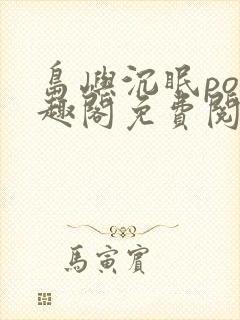 島嶼沉眠po
趣閣免費閱
馬寅賓